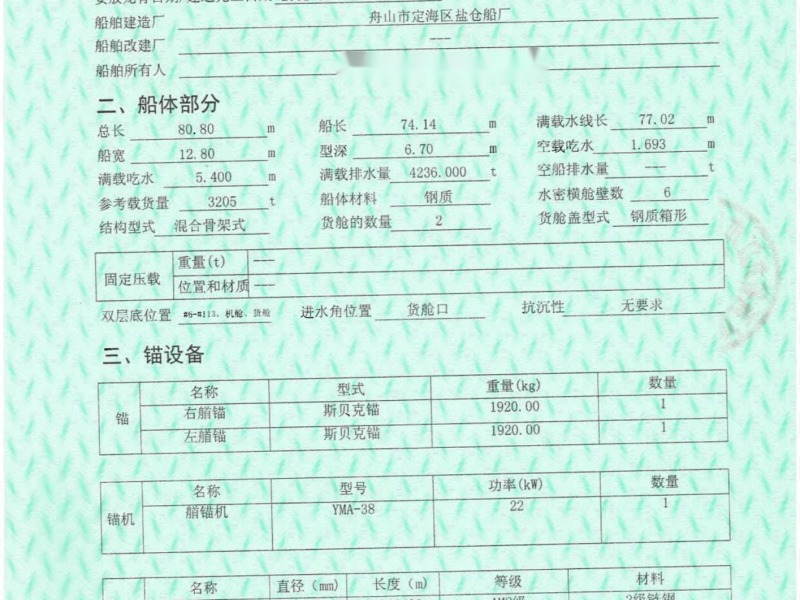 船舶建造厂 舟山市定海区盐仓船厂
船舶改建厂 ---
船舶所有人
二、船体部分
总长 80.80 m 船长 74.14 m 满载水线长 77.02 m
船宽 12.80 m 型深 6.70 m 空载吃水 1.693 m
满载吃水 5.400 m 满载排水量 4236.000 t 空船排水量 --- t
参考载货量 3205 t 船体材料 钢质 水密横舱壁数 6
结构型式 混合骨架式 货舱的数量 2 货舱盖型式 钢质箱形
固定压载 重量(t) ---
位置和材质 ---
双层底位置 #6-#113，机舱、货舱 进水角位置 货舱口 抗沉性 无要求
三、锚设备
锚 名称 型式 重量(kg) 数量
右艏锚 斯贝克锚 1920.00 1
左艏锚 斯贝克锚 1920.00 1
锚机 名称 型号 功率(kW) 数量
艏锚机 YMA-38 22 1
名称 直径（mm） 长度（m） 等级 材料